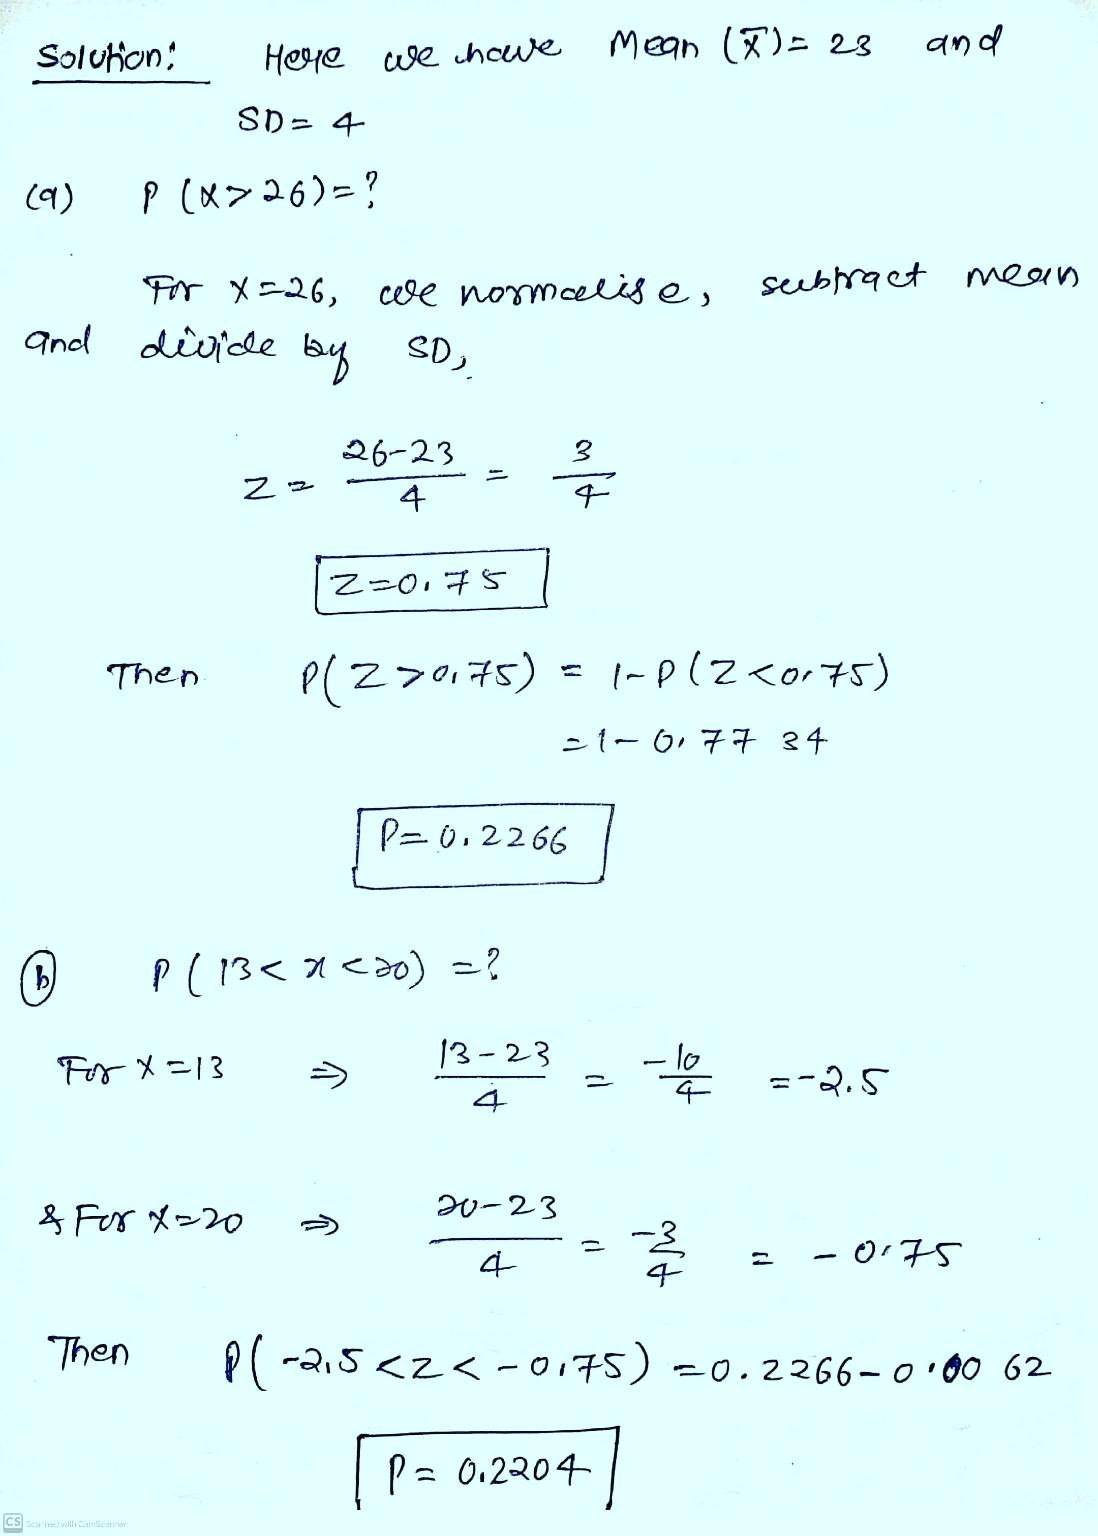 Solution: Here we have Mean (X̄) = 23 and
SD = 4
(a) P (X > 26) = ?
For X = 26, we normalise, subtract mean
and divide by SD,
Z = 26-23 / 4 = 3 / 4
Z = 0.75
Then P(Z > 0.75) = 1 - P(Z < 0.75)
= 1 - 0.7734
P = 0.2266
(b) P (13 < x < 20) = ?
For X = 13 ⇒ 13-23 / 4 = -10 / 4 = -2.5
& For X = 20 ⇒ 20-23 / 4 = -3 / 4 = -0.75
Then P(-2.5 < Z < -0.75) = 0.2266 - 0.0062
P = 0.2204
CS Scanned with CamScanner